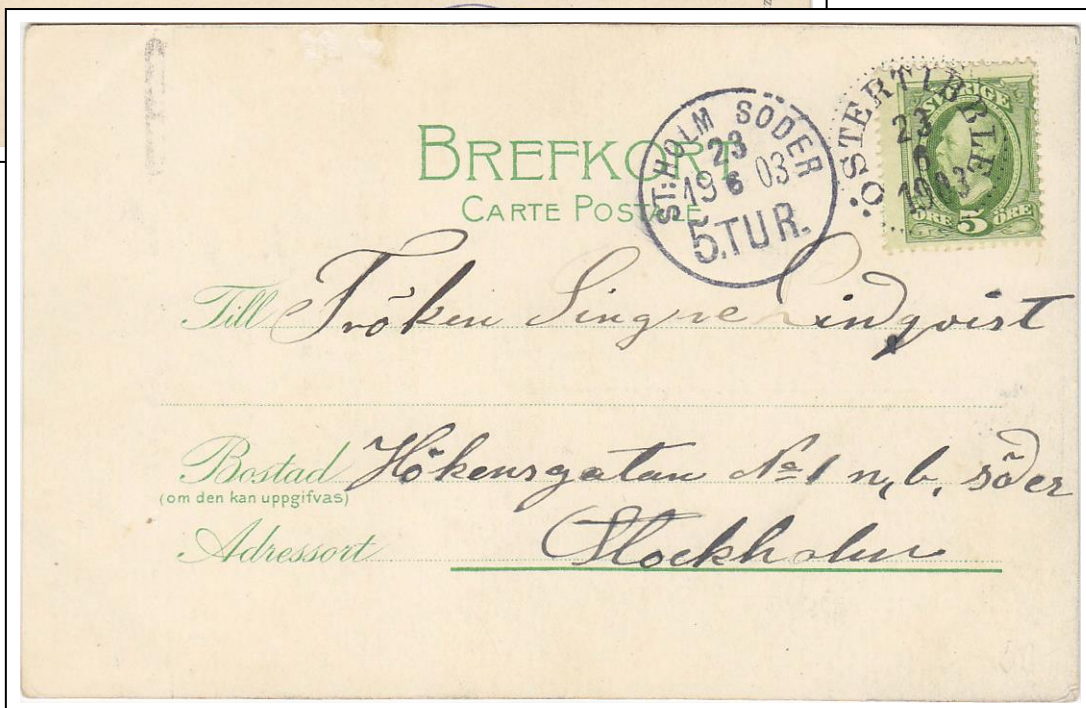 BREFKORT
CARTE POSTALE
ST:HOLM SÖDER
23
19 6 03
5.TUR.
ÖSTERTIBBLE
23
6
1903
SVERIGE
ÖRE 5 ÖRE
Till Fröken Singne Lindqvist
Bostad Hökensgatan No 1 n, b, söder
(om den kan uppgifvas)
Adressort Stockholm